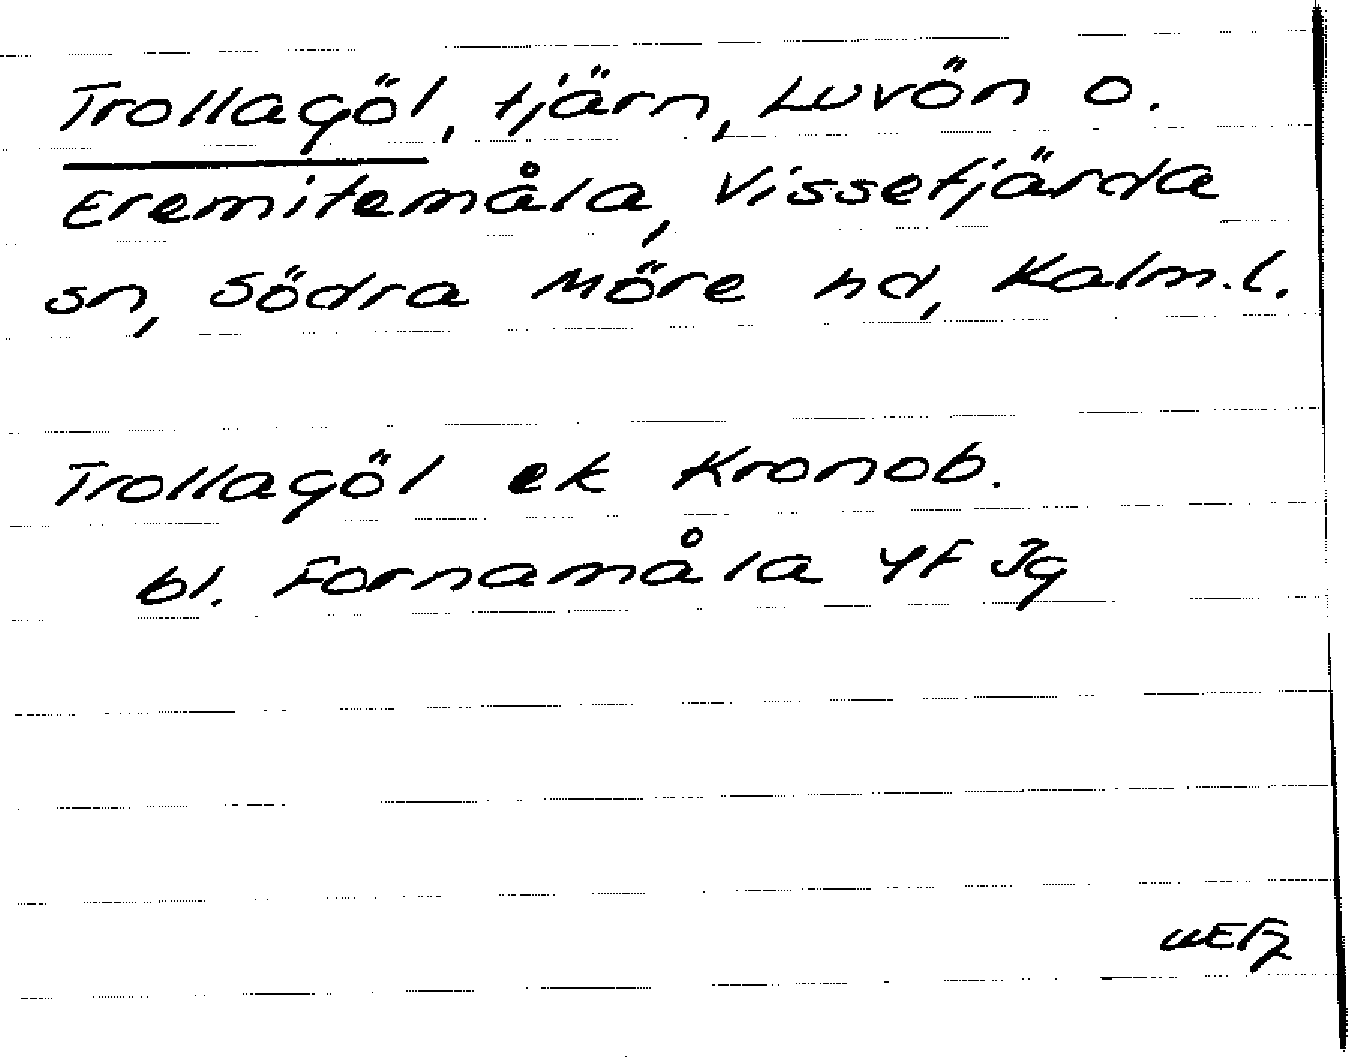 Trollagöl, tjärn, Luvön o.
Eremitemåla, Vissefjärda
sn, Södra Möre hd, Kalm.l.
Trollagöl ek Kronob.
bl. Fornamåla 4F Jg